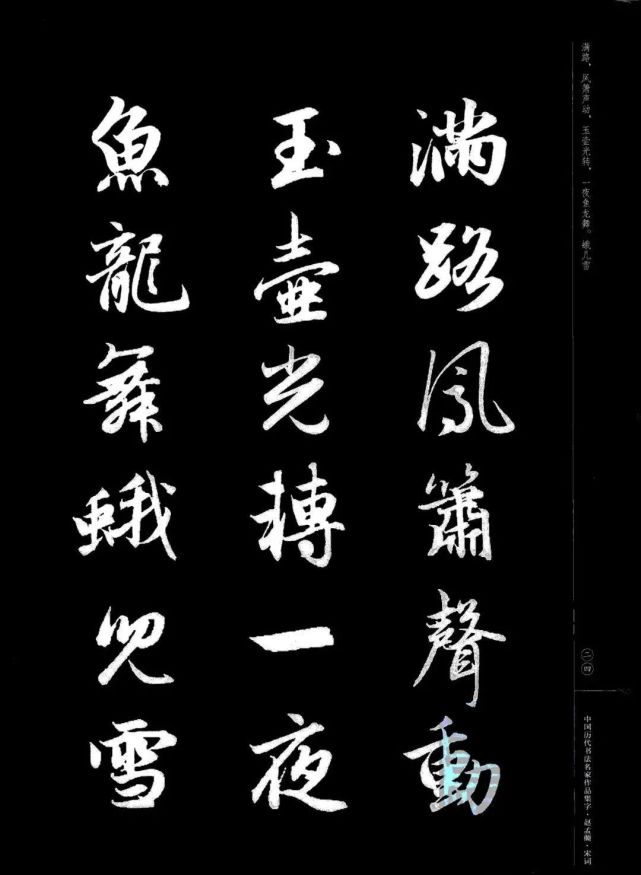 满路，凤箫声动，玉壶光转，一夜鱼龙舞。蛾儿雪
滿路鳳簫聲動
玉壺光轉一夜
魚龍舞蛾兒雪
二四
中国历代书法名家作品集字·赵孟頫·宋词